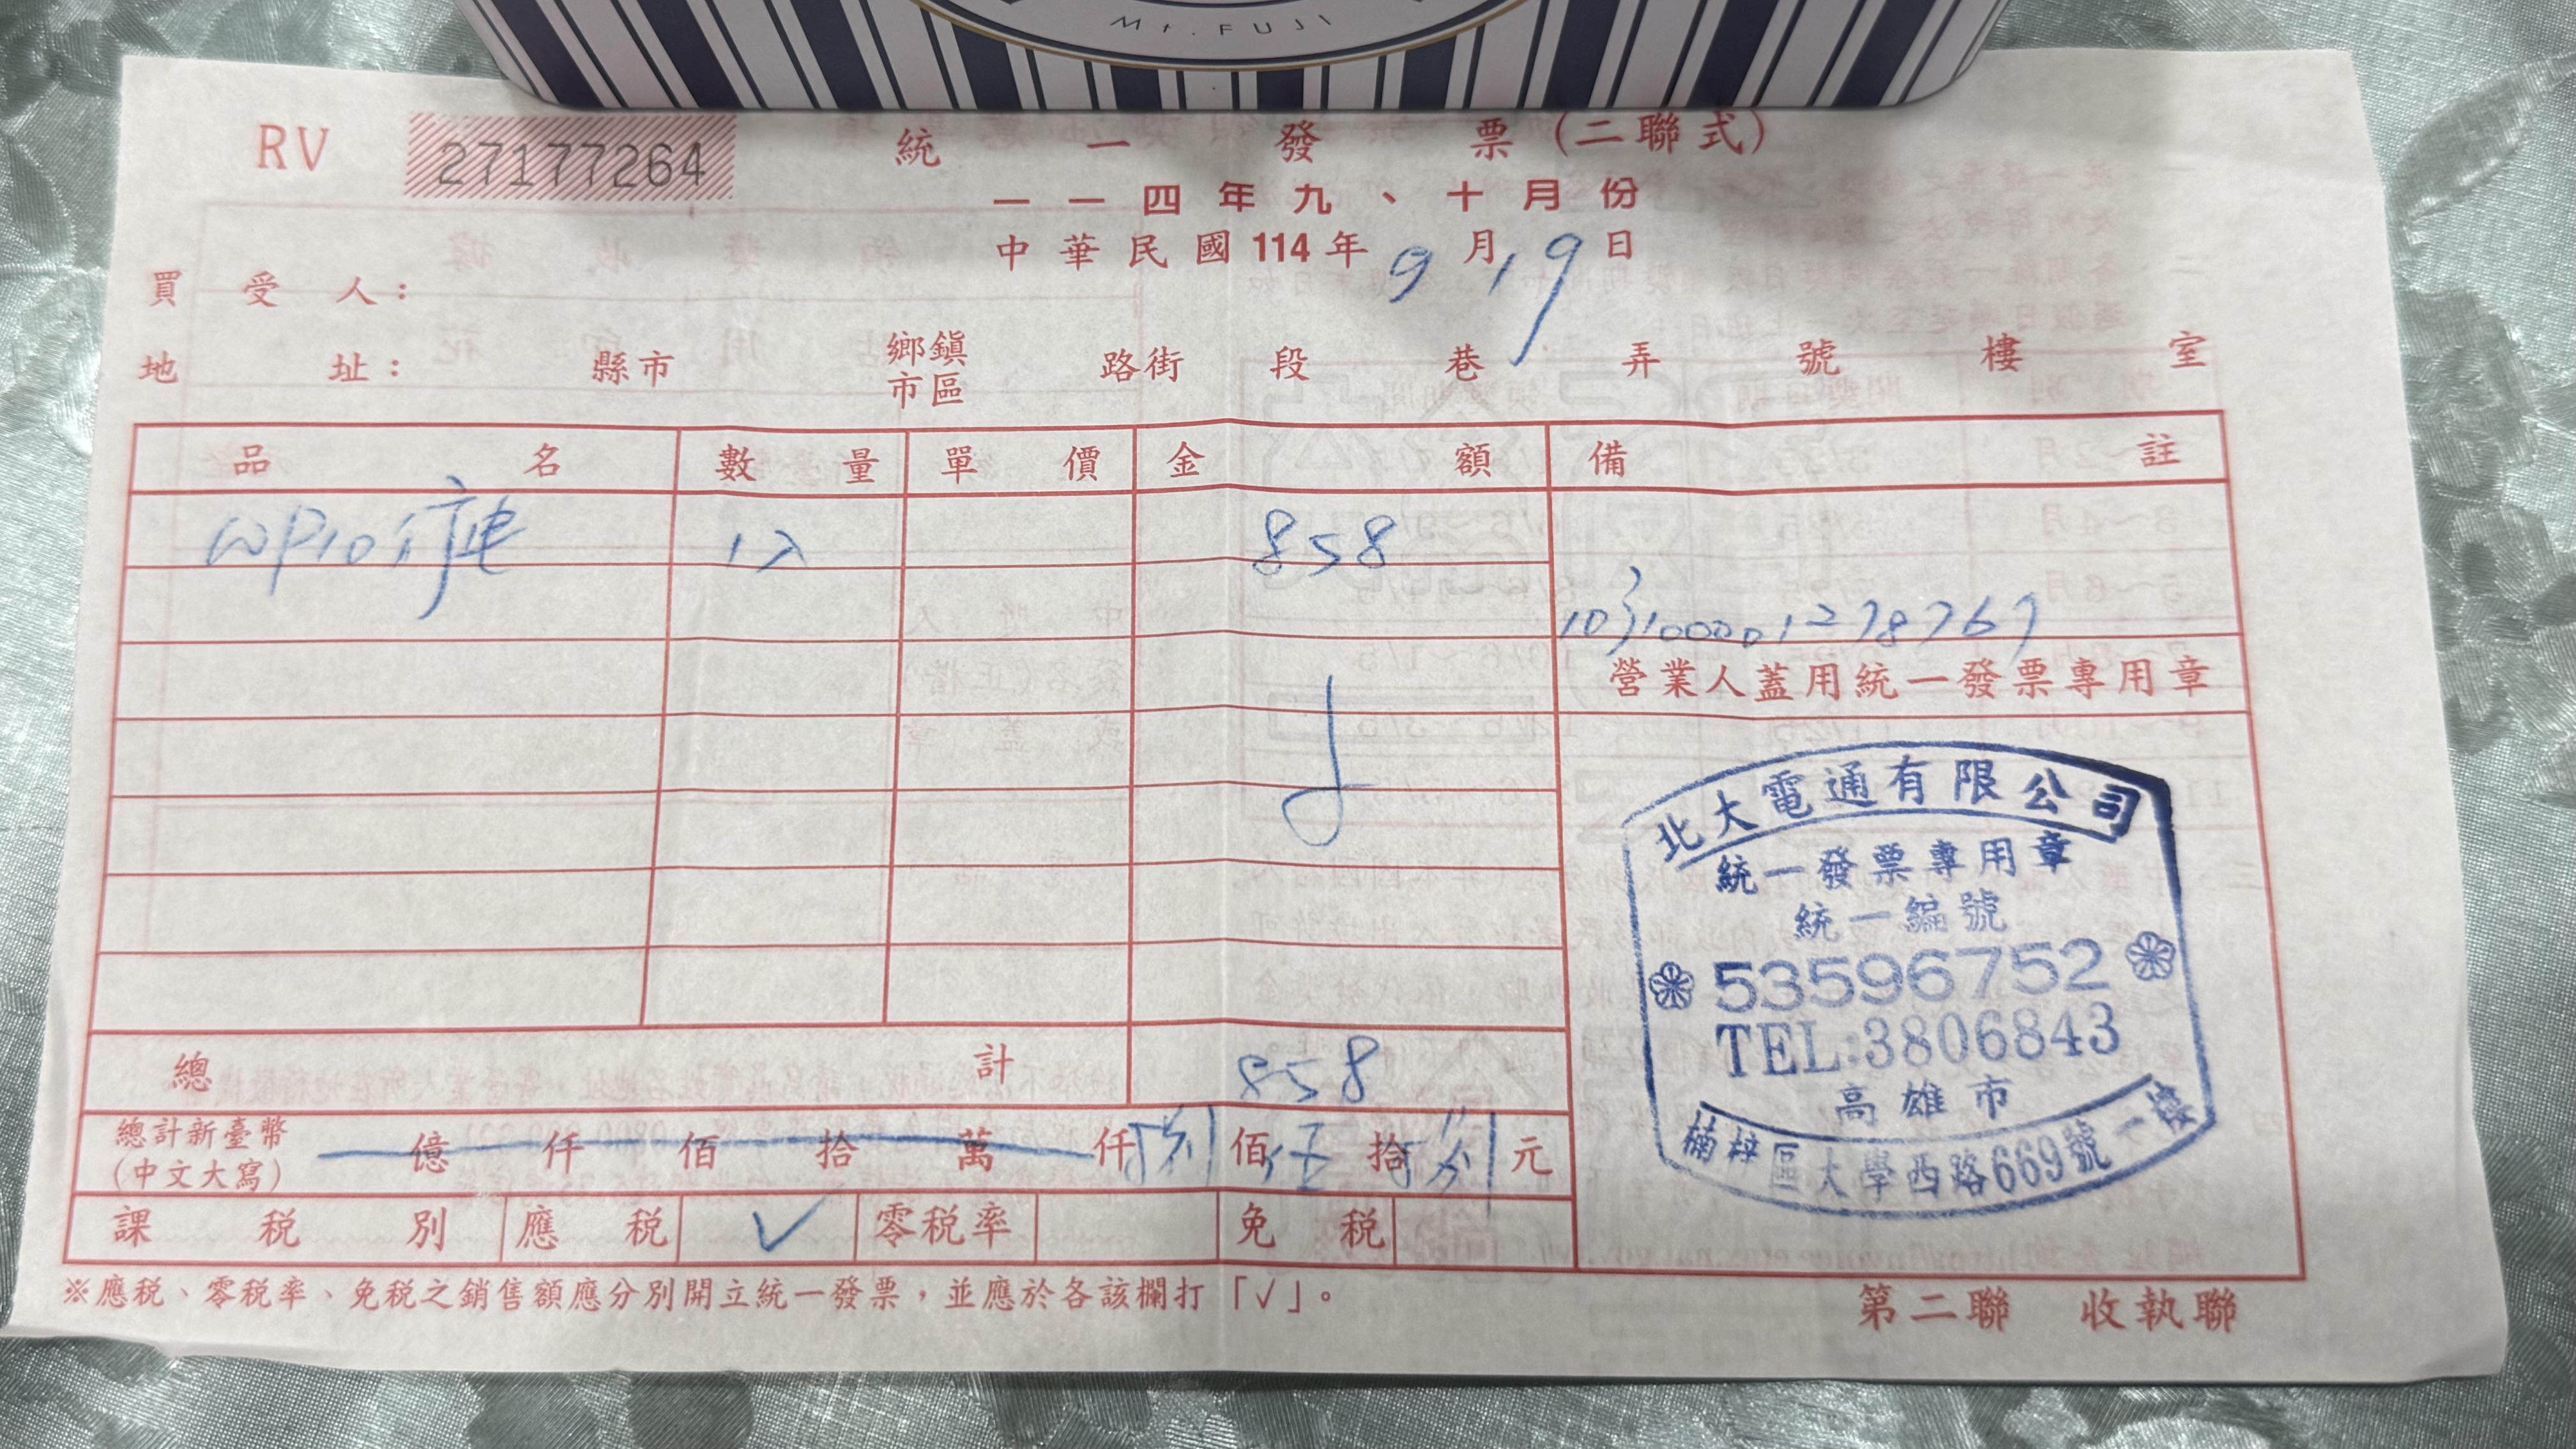 Mt. FUJI
RV 27177264 統一發票(二聯式)
一一四年九、十月份
中華民國114年9月19日
買受人：
地址： 縣市 鄉鎮市區 路街 段 巷 弄 號 樓 室
品名 數量 單價 金額 備註
WP10行電 1入 858
營業人蓋用統一發票專用章
北大電通有限公司
統一發票專用章
統一編號
53596752
TEL:3806843
高雄市
楠梓區大學西路669號一樓
總計 858
總計新臺幣(中文大寫) 億仟佰拾萬仟捌佰伍拾捌元
課稅別 應稅 ✓ 零稅率 免稅
※應稅、零稅率、免稅之銷售額應分別開立統一發票，並應於各該欄打「✓」。
第二聯 收執聯